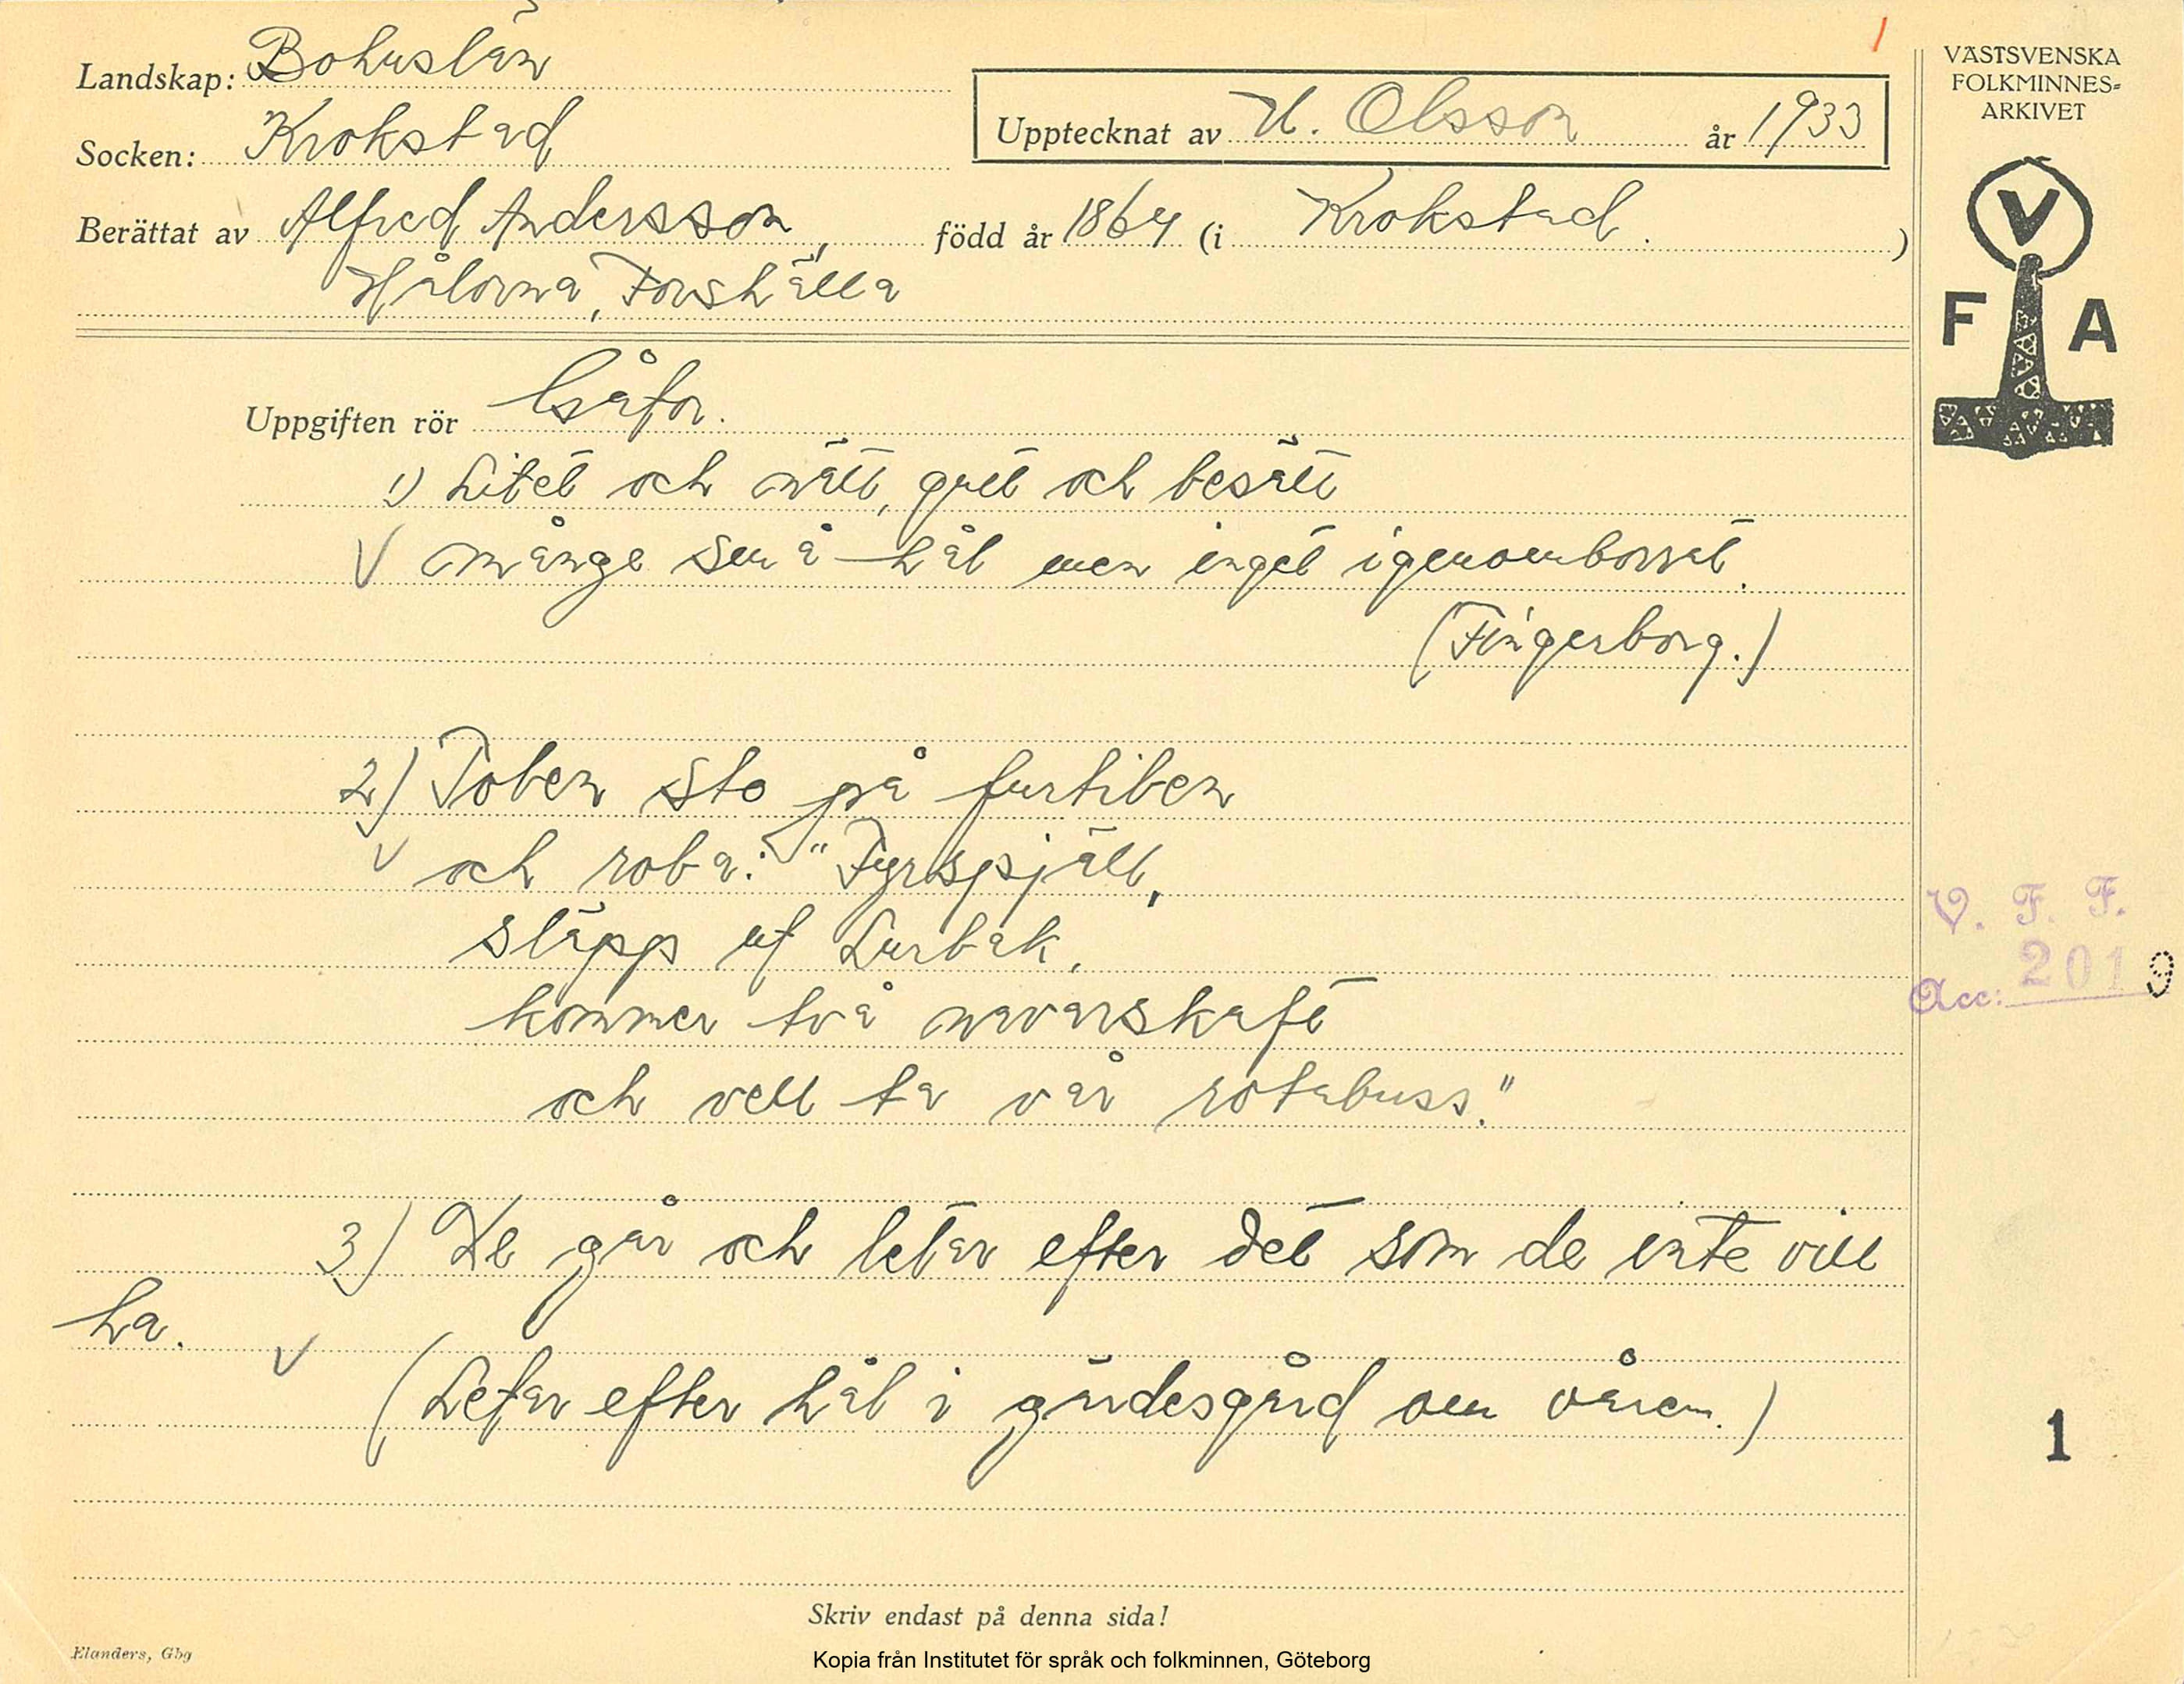 1
Landskap: Bohuslän
Socken: Krokstad
Upptecknat av H. Olsson år 1933
Berättat av Alfred Andersson, född år 1864 (i Krokstad.)
Hålorna, Forshälla
Uppgiften rör Gåtor.
1) Litet och nätt, gått och besätt
V många små hål men inget igenomborrat.
(Fingerborg.)
2) Toben sto på furtiben
V och roba: "Fyrspjäll,
släpp ut Lurbak,
kommer två navarskaft
och vell ta vår rotabuss."
3) De går och letar efter det som de inte vill
ha.
V (Letar efter hål i gärdesgård om våren.)
Skriv endast på denna sida!
Elanders, Gbg
Kopia från Institutet för språk och folkminnen, Göteborg
VÄSTSVENSKA
FOLKMINNES-
ARKIVET
V
F A
V. F. F.
Acc: 2019
1